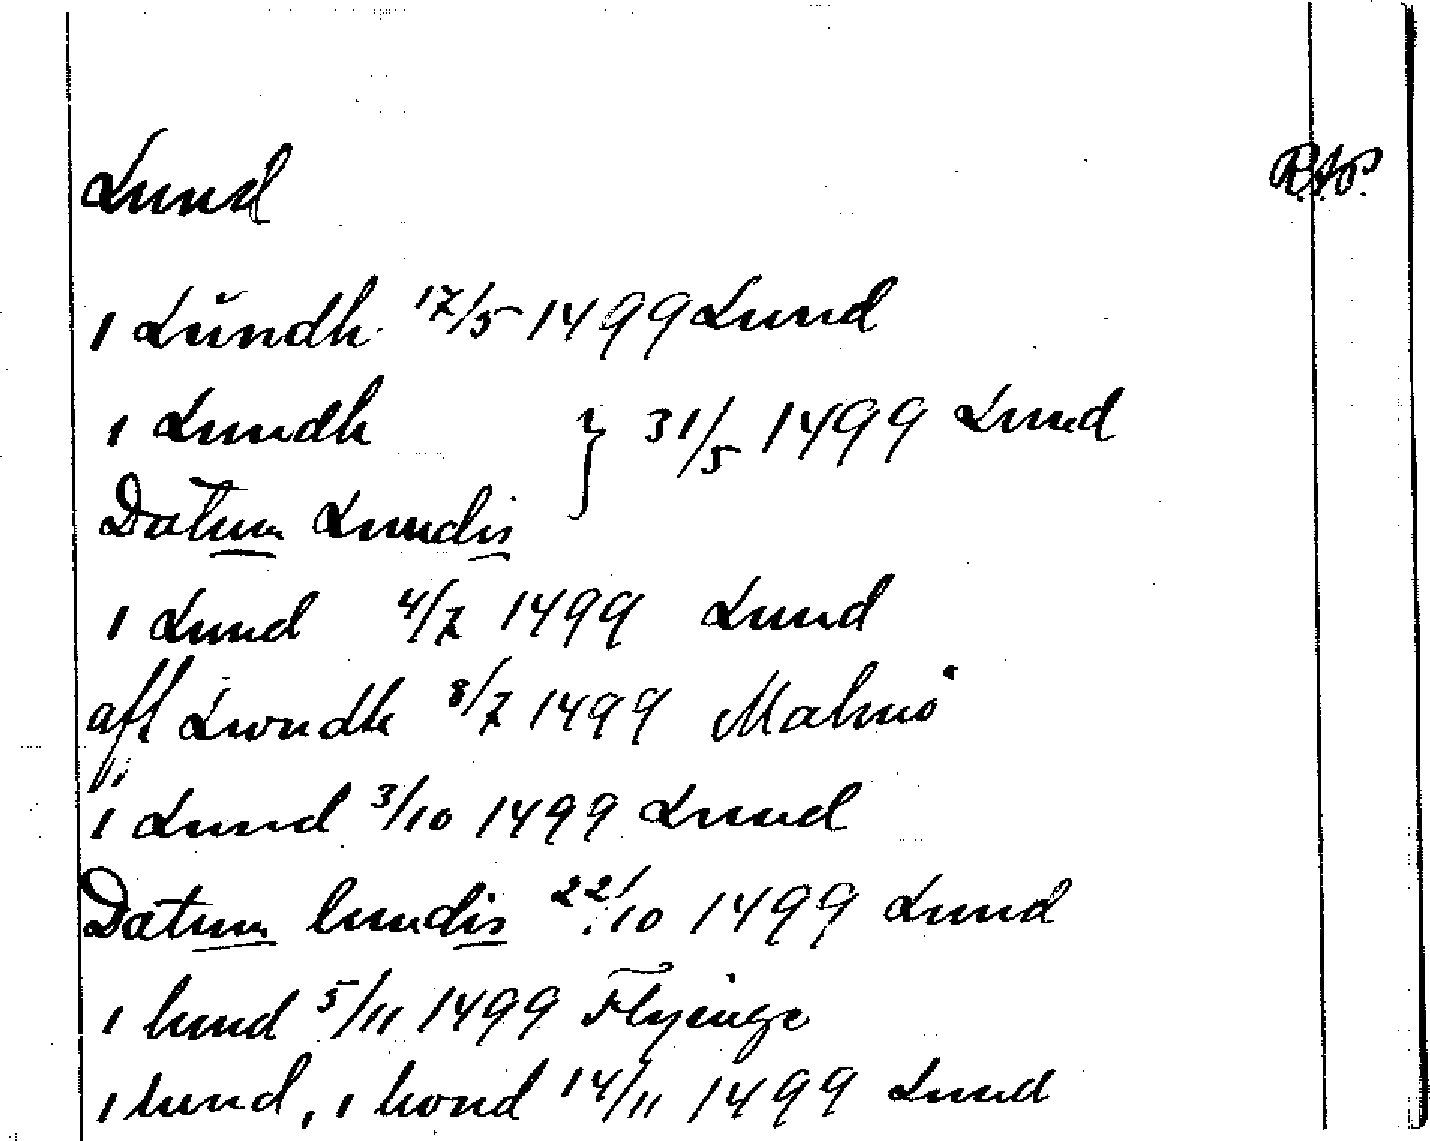 Lund R.A.P.
i Lŭndh 17/5 1499 Lund
i Lundh } 31/5 1499 Lund
Datum Lundis
i Lund 4/7 1499 Lund
aff Lwndh 8/7 1499 Malmö
i Lund 3/10 1499 Lund
Datum lundis 22/10 1499 Lund
i lund 5/11 1499 Flyinge
i lund, i lond 14/11 1499 Lund